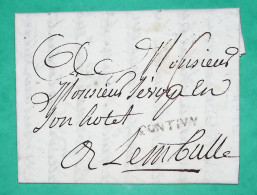 Monsieur
Monsieur
son hotel
PONTIVY
A Lamballe